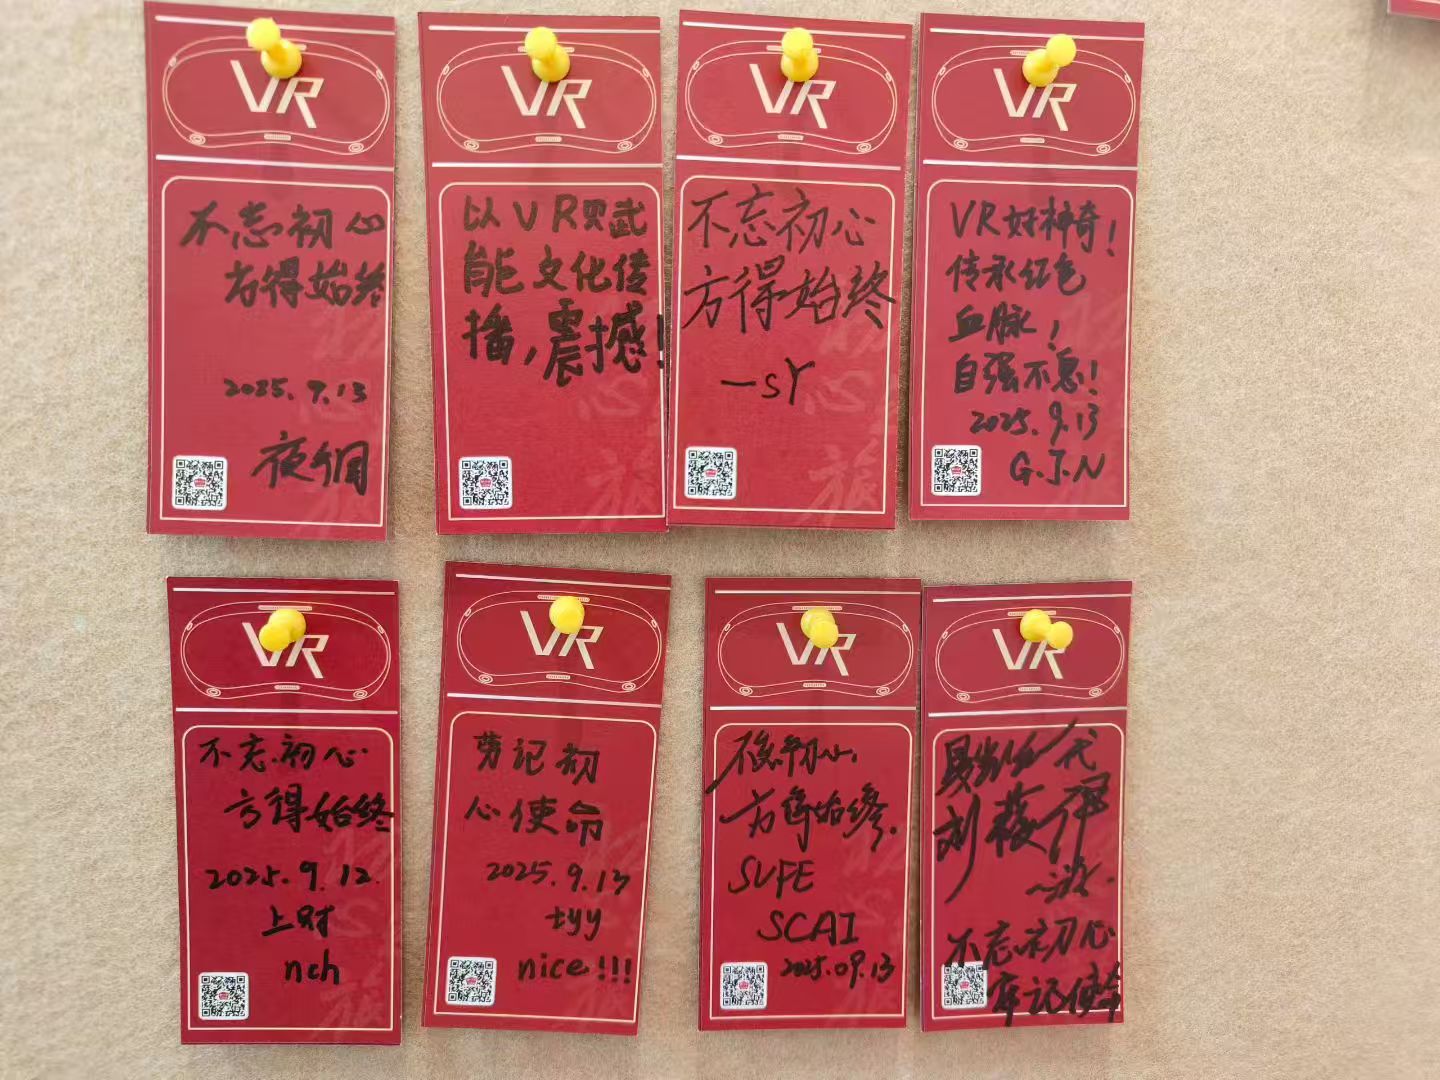 VR
不忘初心
方得始终
2025.9.13
VR
以VR赋
能文化传
播,震撼!
VR
不忘初心
方得始终
—SY
VR
VR好神奇!
传承红色
血脉!
自强不息!
2025.9.13
G.J.N
VR
不忘初心
方得始终
2025.9.12.
上财
nch
VR
劳记初
心使命
2025.9.13
tyy
nice!!!
VR
不忘初心,
方得始终.
SUFE
SCAI
2025.09.13
VR
不忘初心
牢记使命